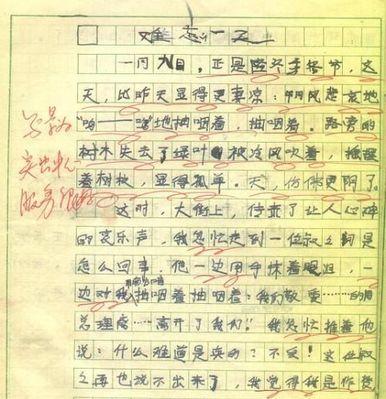 难忘一天
一月九日，正是隆冬季节，这
天，比昨天显得更凄凉：阴风悲哀地
"呜——呜"地抽咽着，抽咽着。路旁的
树木失去了绿叶被冷风吹着，摇摆
着树枝，显得孤单。天，仿佛更阴了。
这时，大街上，传来了让人心碎
的哀乐声，我急忙走到一位叔叔问是
怎么回事，他一边用手抹着眼泪，一
边对我抽咽着抽咽着：我们敬爱……的周
总理离……开了我们。"我急忙推着他
说：什么难道是真的？不是！这位叔
叔再也说不出来了，我觉得我是
写景为
突出中心
服务很好